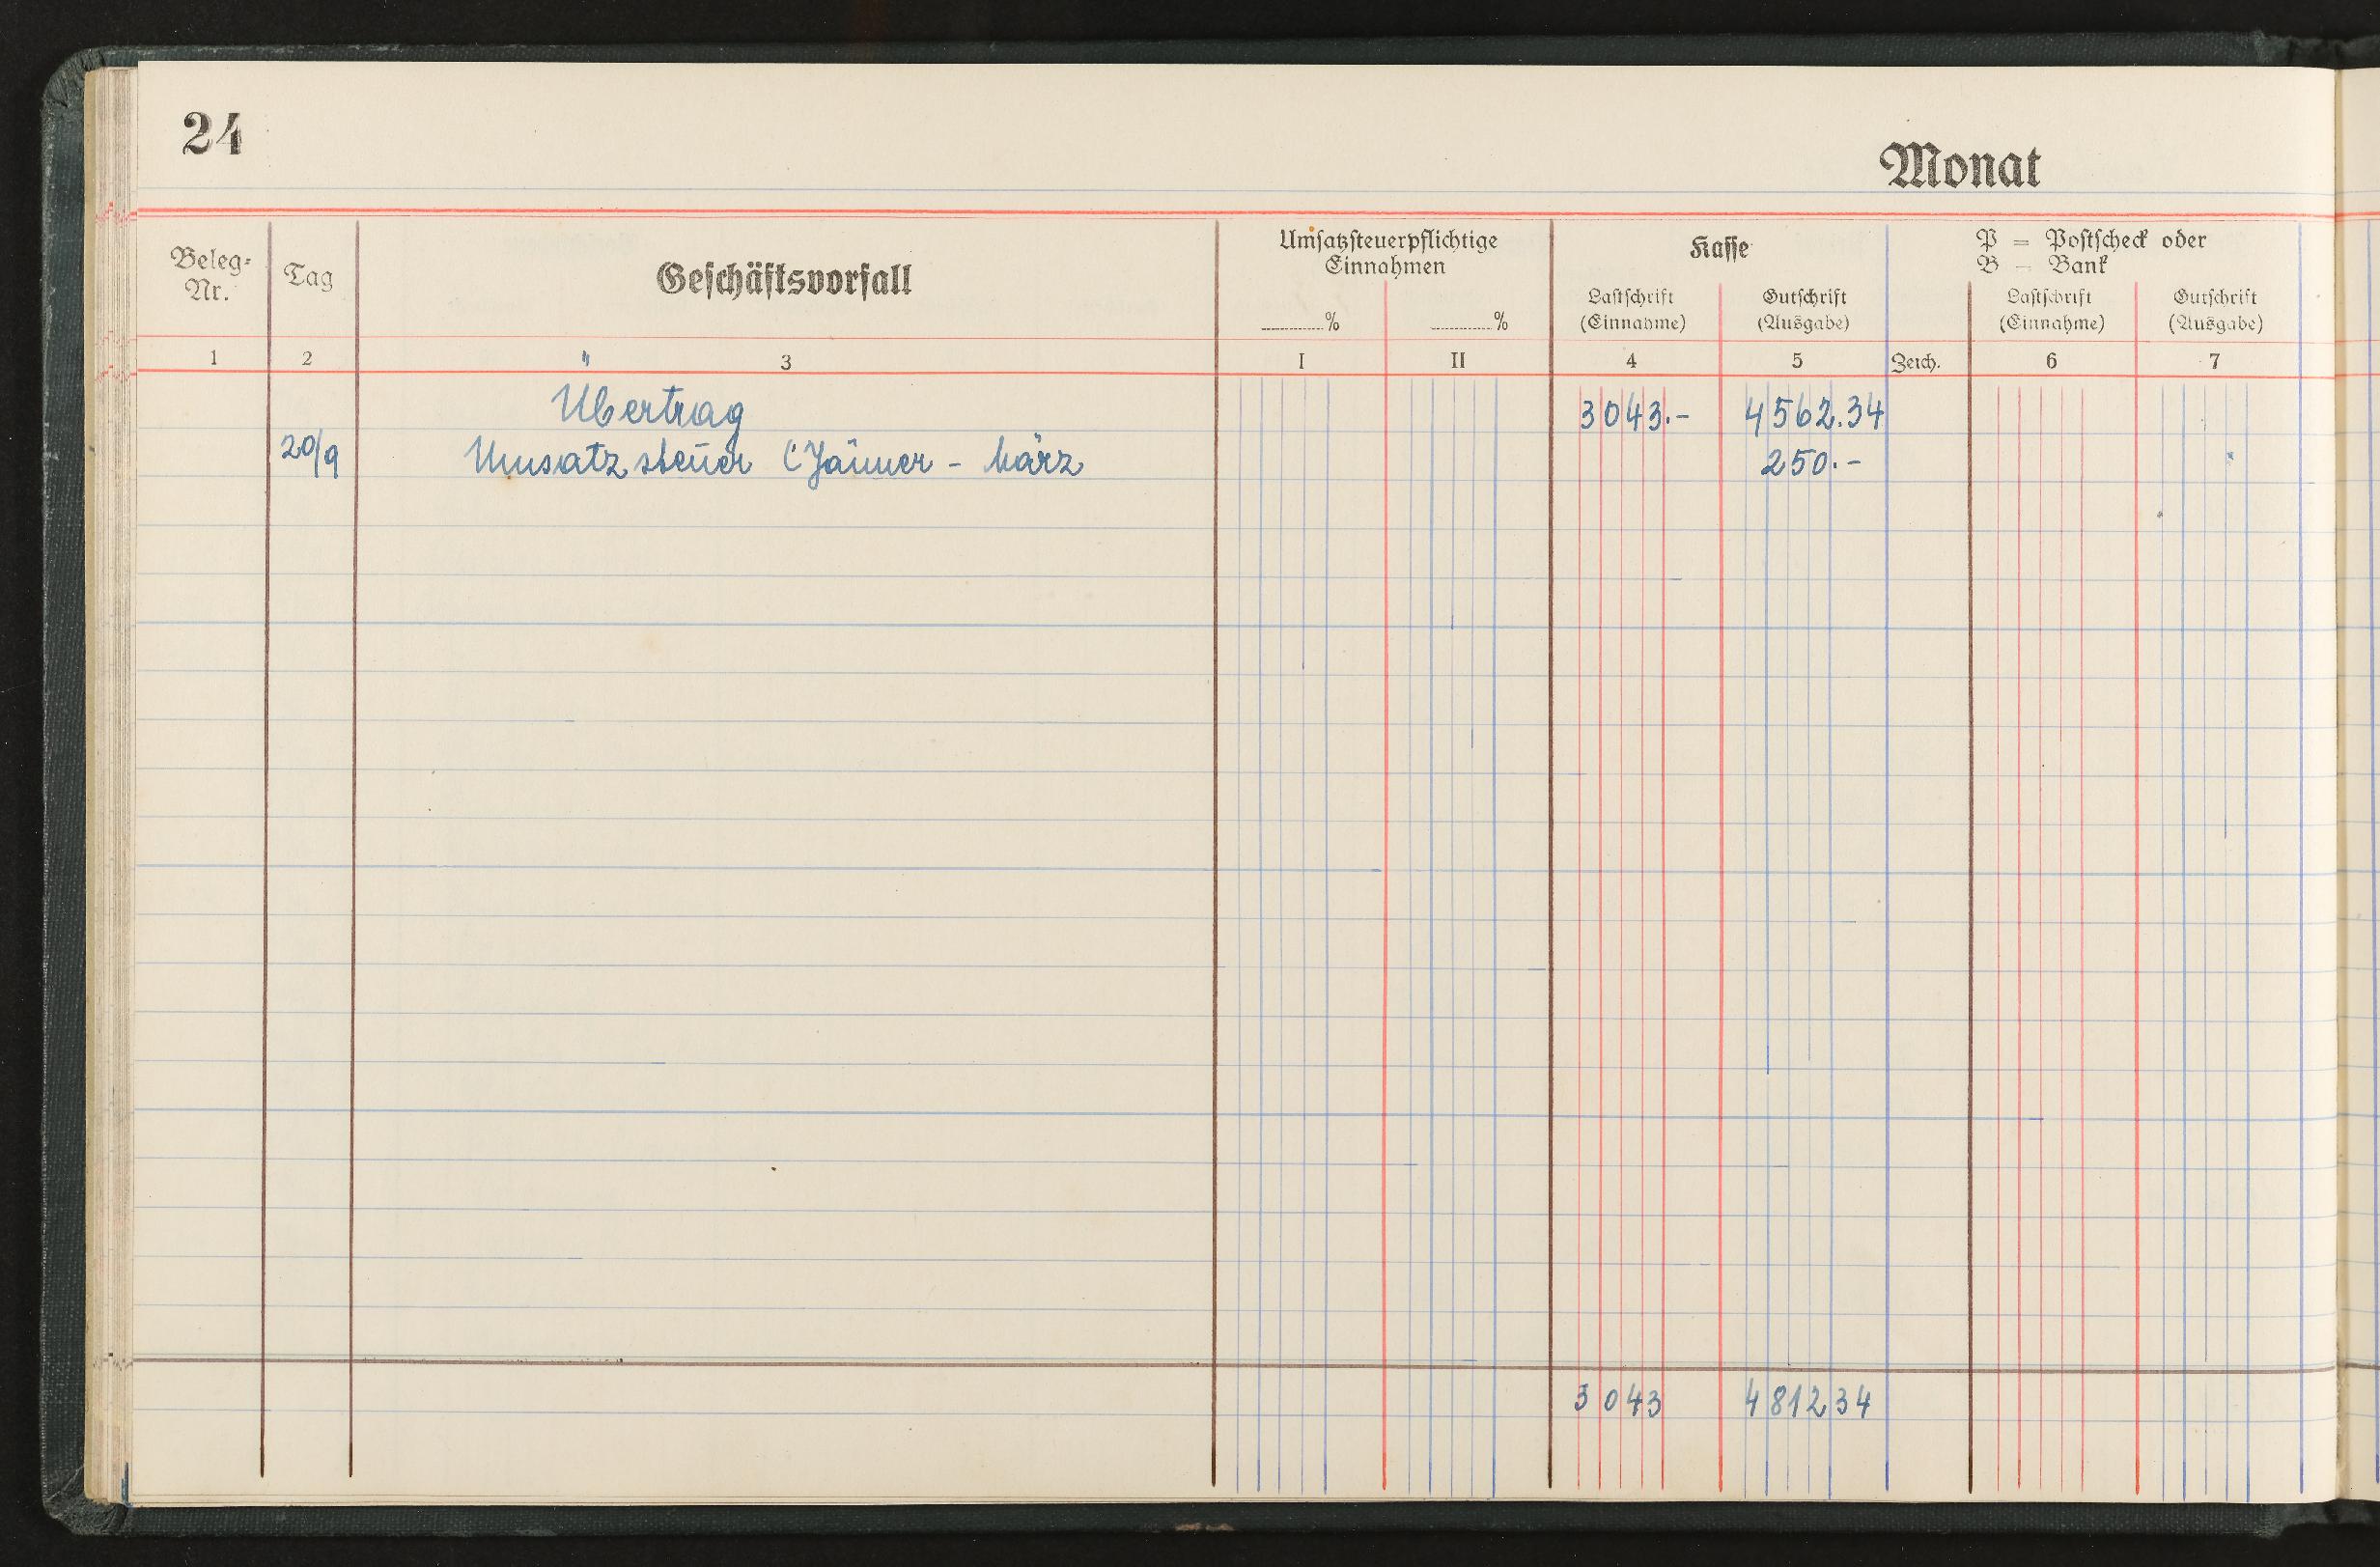 24
Monat
Beleg-Nr.
Tag
Geschäftsvorfall
Umsatzsteuerpflichtige Einnahmen
%
%
Kasse
Lastschrift (Einnahme)
Gutschrift (Ausgabe)
P = Postscheck oder
B = Bank
Lastschrift (Einnahme)
Gutschrift (Ausgabe)
1 2 3 I II 4 5 Zeich. 6 7
Übertrag 3043.- 4562.34
20/9 Umsatzsteuer (Jänner - März 250.-
3043 481234